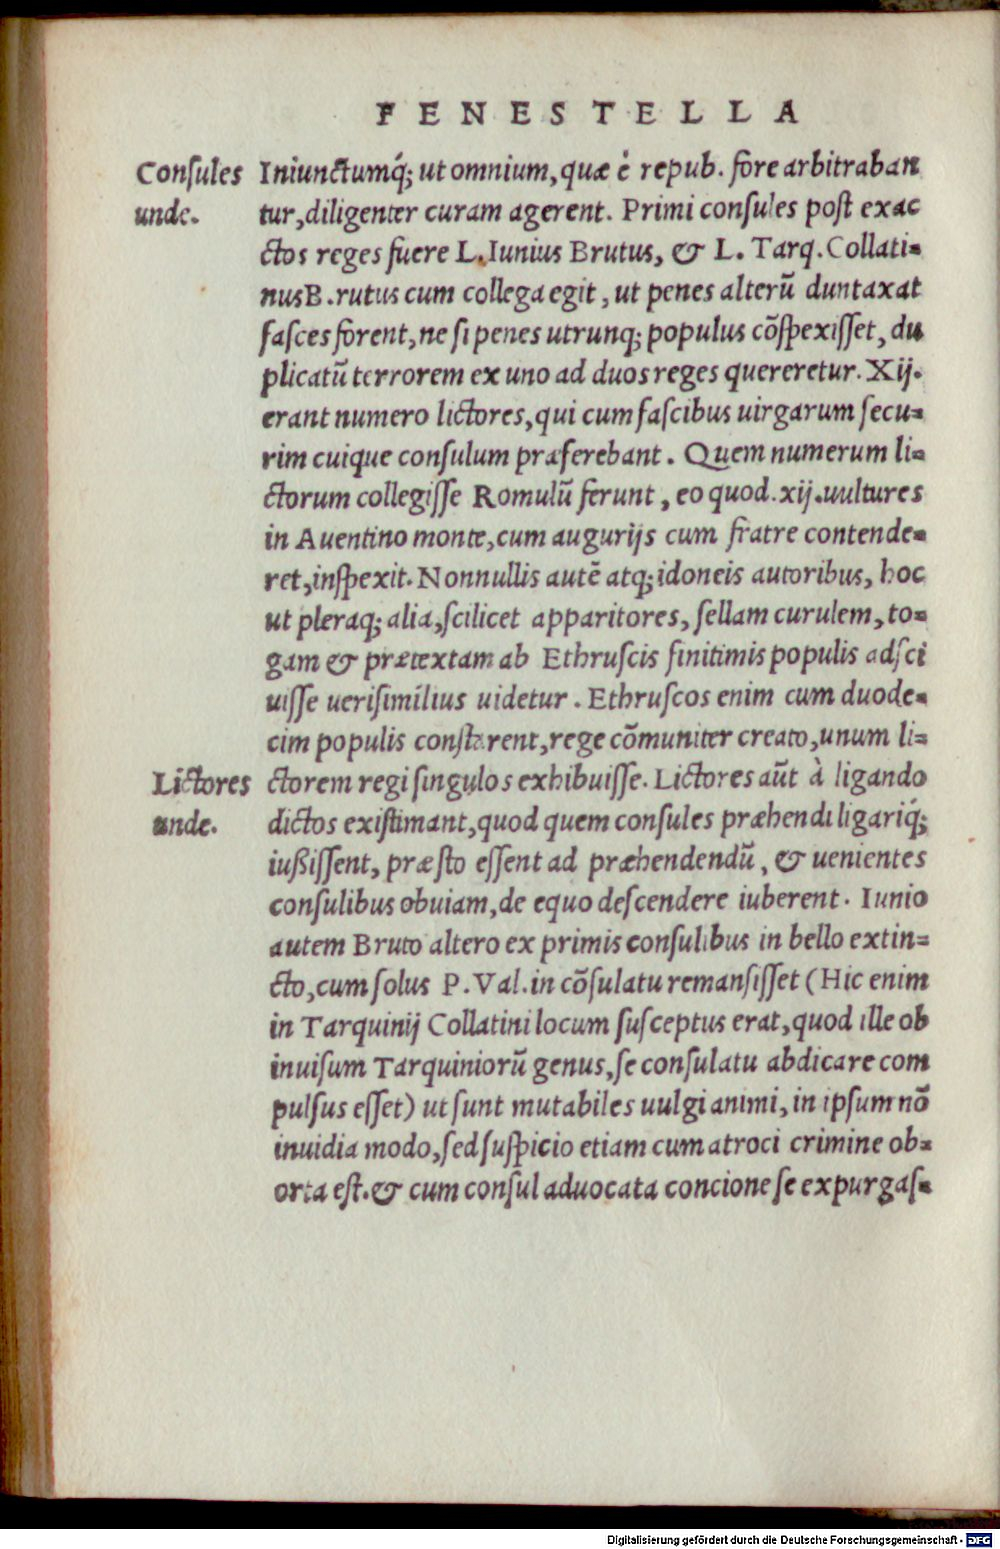 FENESTELLA
Conſules
unde.
Iniunctumq́; ut omnium, quæ è repub. fore arbitraban
tur, diligenter curam agerent. Primi conſules poſt exac
ctos reges fuere L. Iunius Brutus, & L. Tarq. Collati-
nusB.rutus cum collega egit, ut penes alterū duntaxat
faſces forent, ne ſi penes utrunq; populus cōſpexiſſet, du
plicatū terrorem ex uno ad duos reges quereretur. Xij.
erant numero lictores, qui cum faſcibus uirgarum ſecu-
rim cuique conſulum præferebant. Quem numerum li-
ctorum collegiſſe Romulū ferunt, eo quod .xij. uultures
in Auentino monte, cum augurijs cum fratre contende-
ret, inſpexit. Nonnullis autē atq; idoneis autoribus, hoc
ut pleraq; alia, ſcilicet apparitores, ſellam curulem, to-
gam & prætextam ab Ethruſcis finitimis populis adſci
uiſſe ueriſimilius uidetur. Ethruſcos enim cum duode-
cim populis conſtarent, rege cōmuniter creato, unum li-
Lictores
unde.
ctorem regi ſingulos exhibuiſſe. Lictores aūt à ligando
dictos exiſtimant, quod quem conſules præhendi ligariq́;
iußiſſent, præſto eſſent ad præhendendū, & uenientes
conſulibus obuiam, de equo deſcendere iuberent. Iunio
autem Bruto altero ex primis conſulibus in bello extin-
cto, cum ſolus P. Val. in cōſulatu remanſiſſet (Hic enim
in Tarquinij Collatini locum ſuſceptus erat, quod ille ob
inuiſum Tarquiniorū genus, ſe conſulatu abdicare com
pulſus eſſet) ut ſunt mutabiles uulgi animi, in ipſum nō
inuidia modo, ſed ſuſpicio etiam cum atroci crimine ob-
orta eſt. & cum conſul aduocata concione ſe expurgaſ-
Digitalisierung gefördert durch die Deutsche Forschungsgemeinschaft - DFG